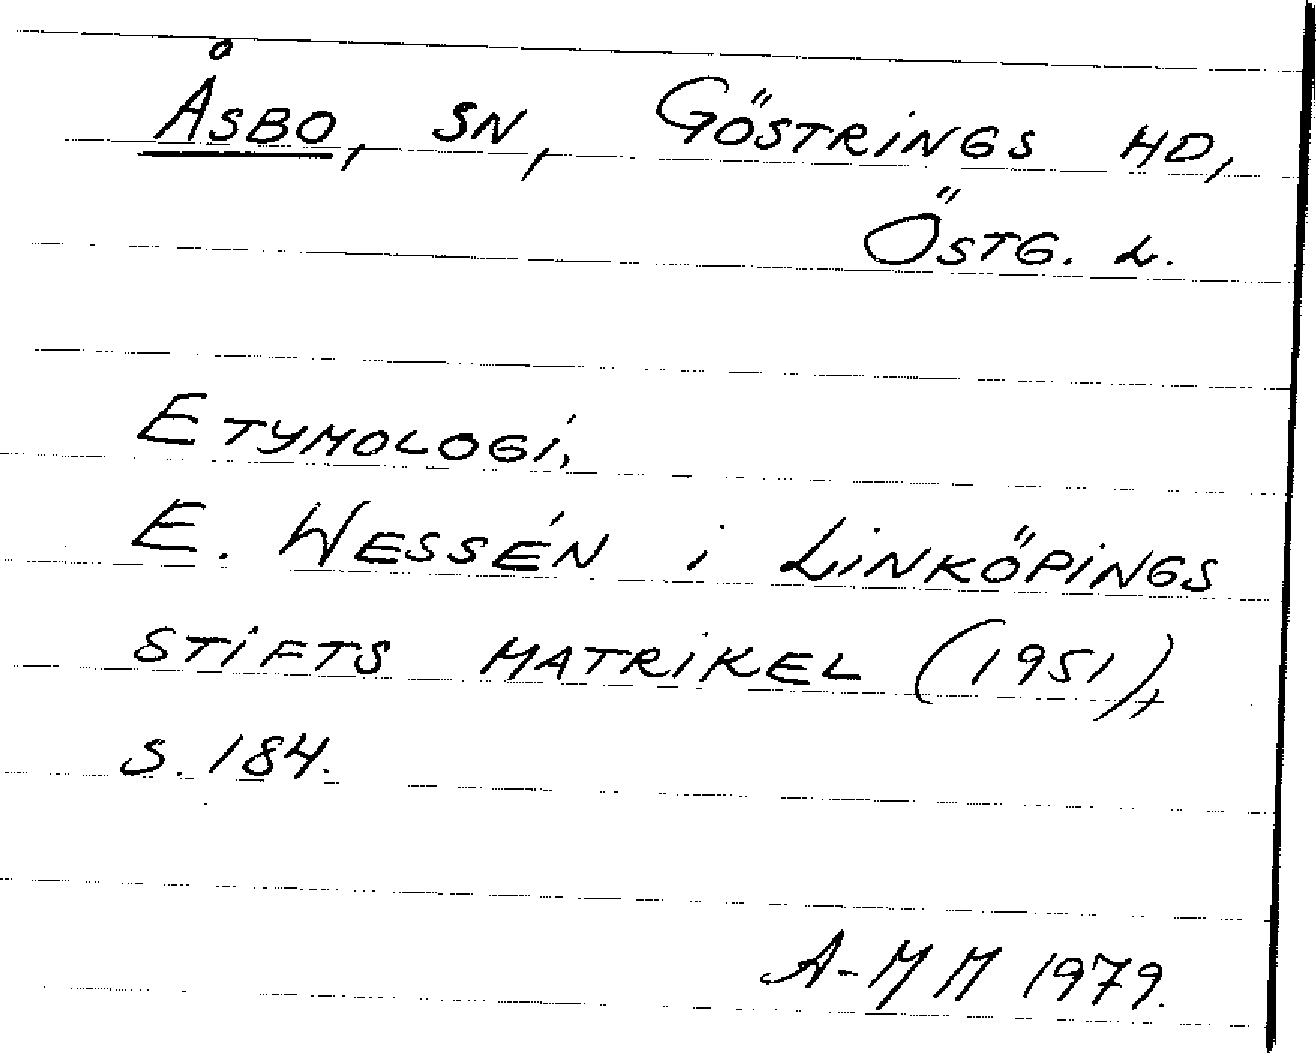 ÅSBO, SN, GÖSTRINGS HD,
ÖSTG. L.
ETYMOLOGI,
E. WESSÉN i LINKÖPINGS
STIFTS MATRIKEL (1951),
S. 184.
A-MM 1979.